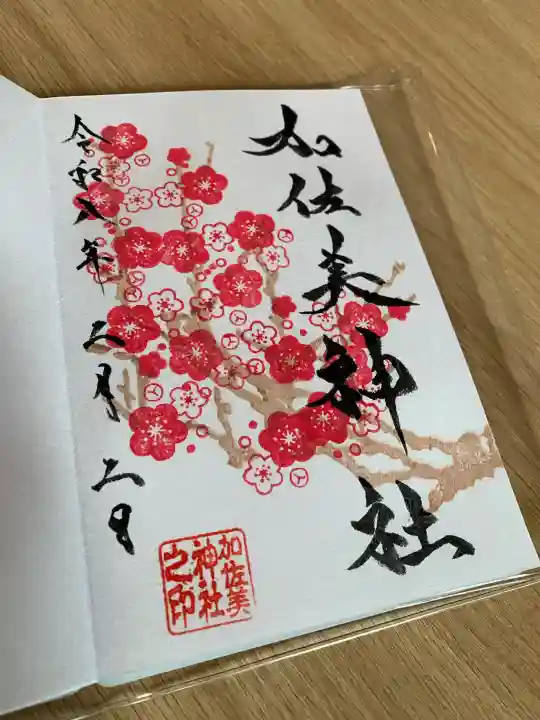 加佐美神社
令和八年二月二日
加佐美
神社
之印